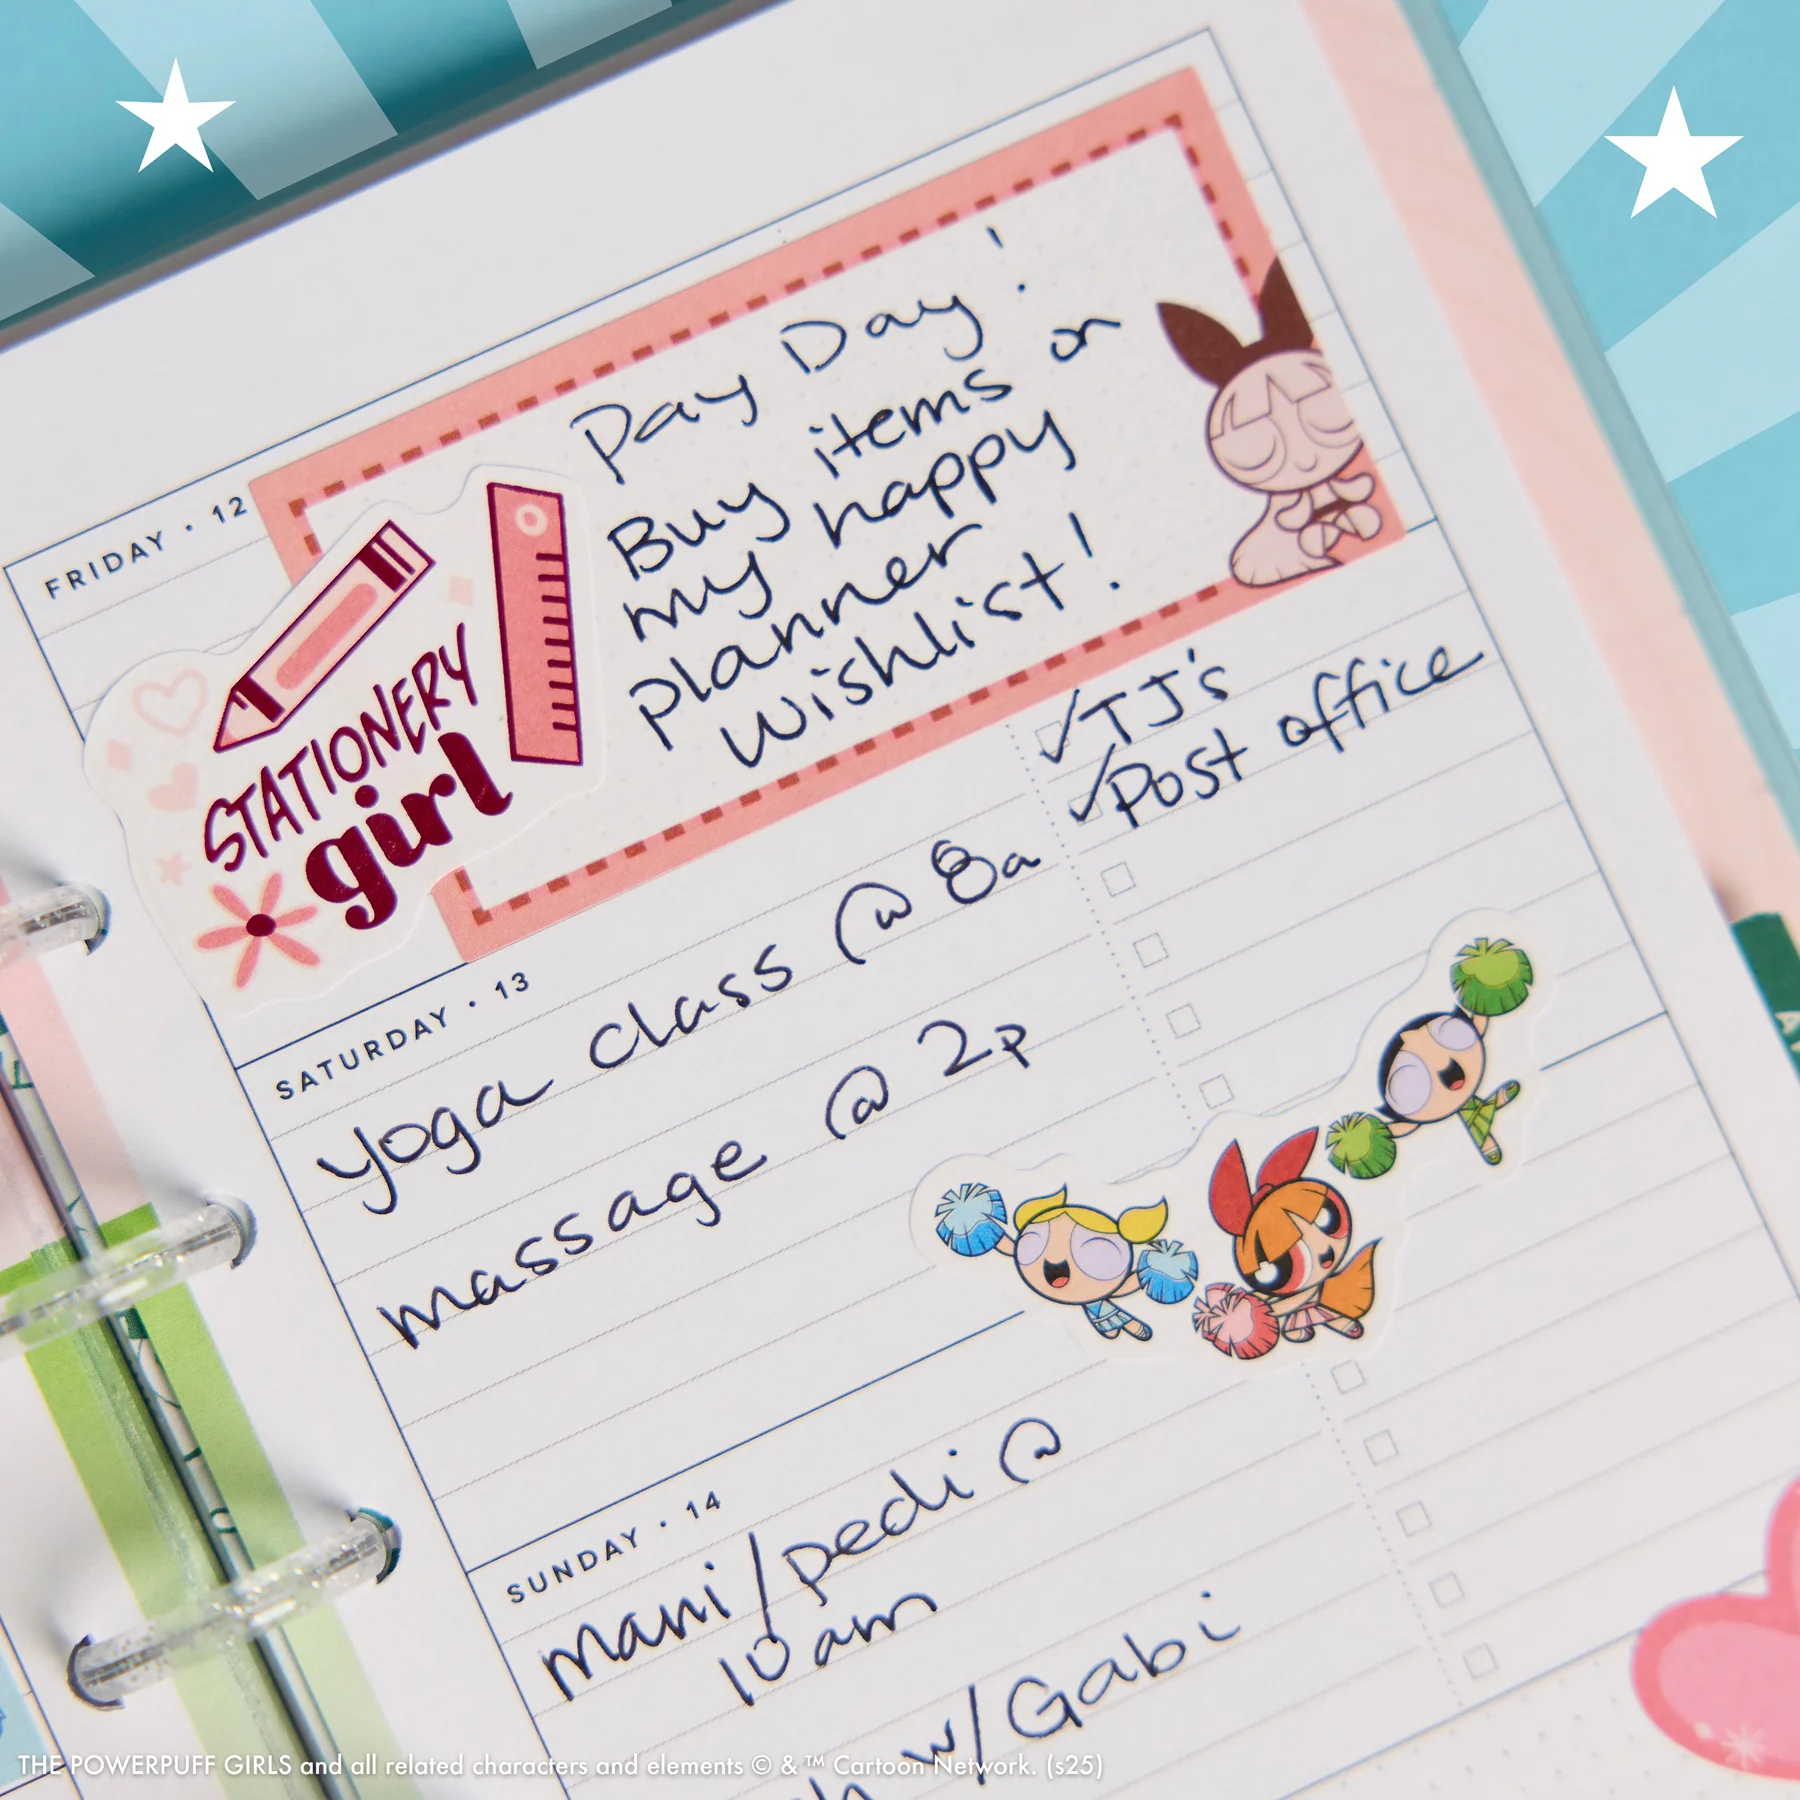 FRIDAY · 12
Pay Day!
Buy items on
my happy
planner
Wishlist!
STATIONERY
girl
✓TJ's
✓Post office
SATURDAY · 13
yoga class @ 8a
massage @ 2p
SUNDAY · 14
mani/pedi @
10am
w/Gabi
THE POWERPUFF GIRLS and all related characters and elements © & ™ Cartoon Network. (s25)